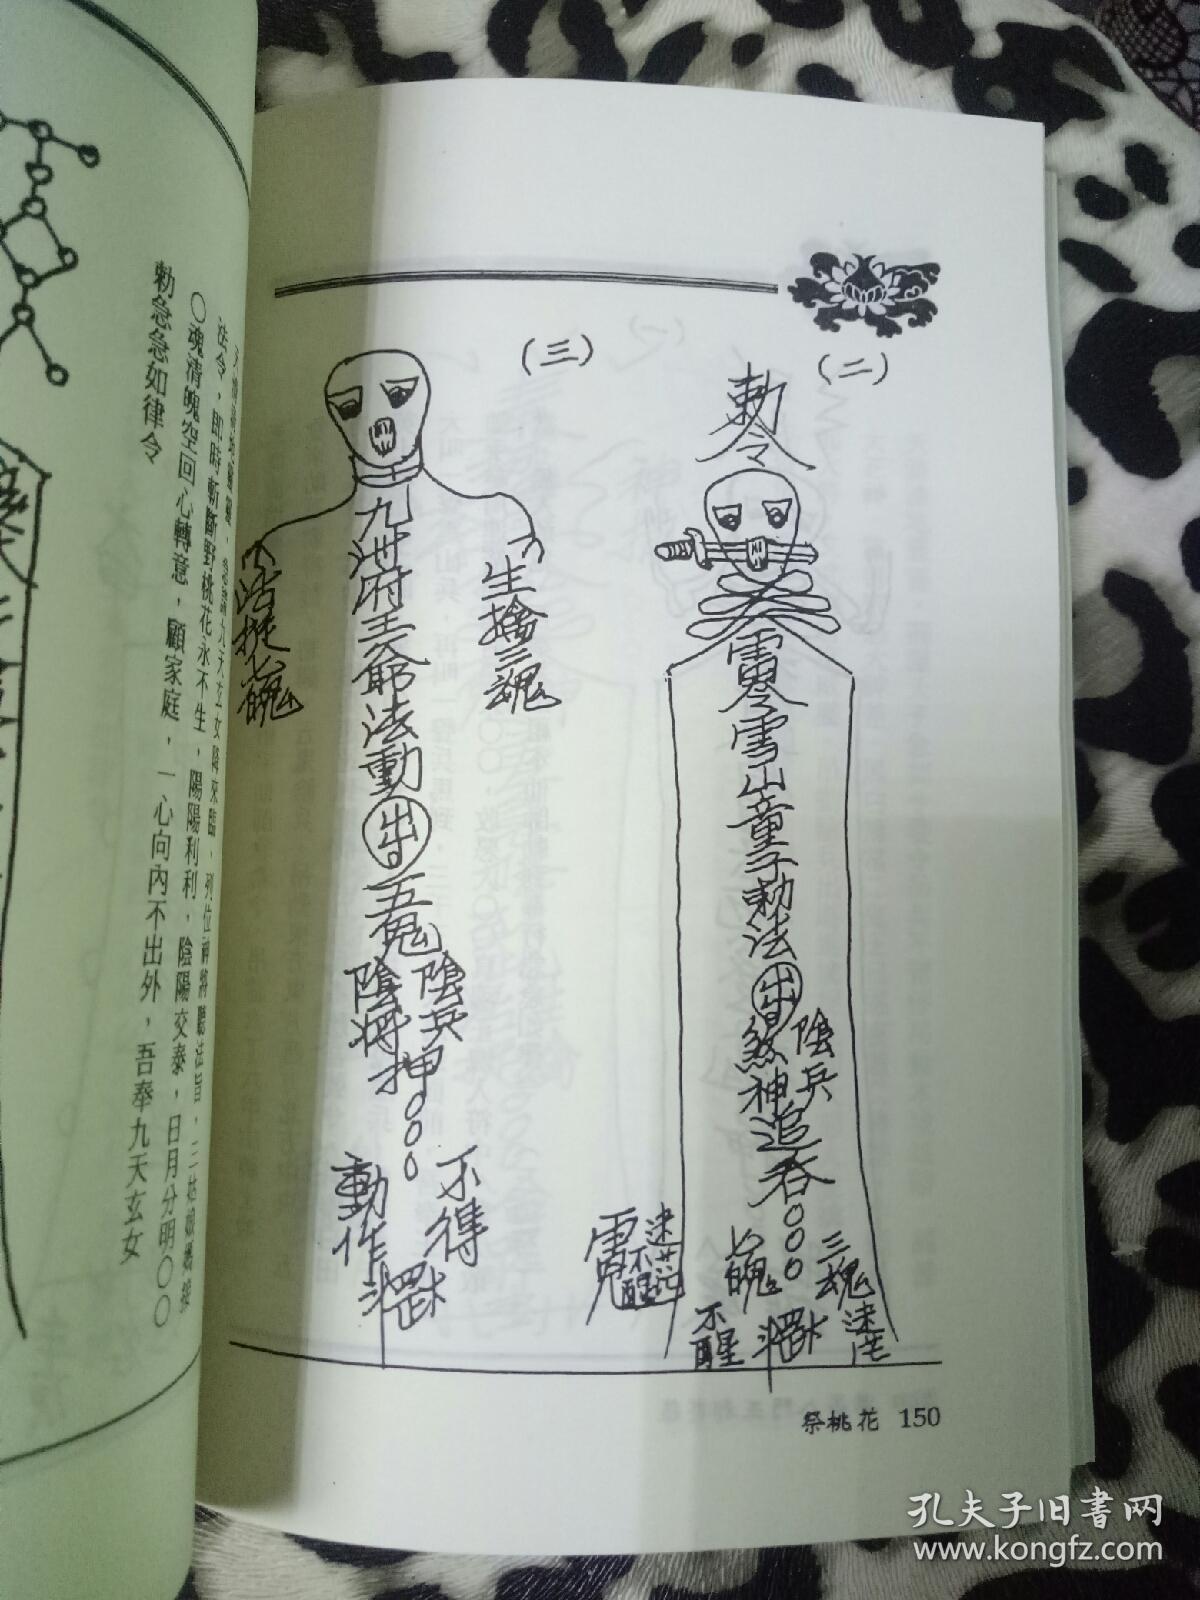 (二)
勅令
雪山童子勅法
陰兵
煞神追吞○○○
三魂
七魄
迷茫
不醒
(三)
九洲府王爺法動
五鬼
陰兵
陰將
押○○○
不得
動作
生擒三魂
活捉七魄
法令，即時斬斷野桃花永不生，陽陽利利，陰陽交泰，日月分明○○
○魂清魄空回心轉意，顧家庭，一心向內不出外，吾奉九天玄女
勅急急如律令
祭桃花 150
孔夫子旧書网
www.kongfz.com